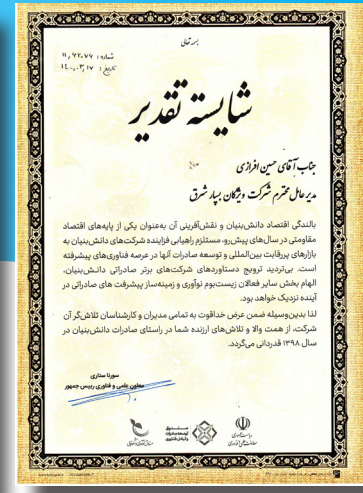 بسمه تعالی
شماره : ۱۱٫۶۲۰۷۷
تاریخ : ۱۴۰۰٫۰۳٫۱۷
شایسته تقدیر
جناب آقای حسین افرازی
مدیر عامل محترم شرکت ویژگان بسپار شرق
بالندگی اقتصاد دانش‌بنیان و نقش‌آفرینی آن به‌عنوان یکی از پایه‌های اقتصاد
مقاومتی در سال‌های پیش‌رو، مستلزم راهیابی فزاینده شرکت‌های دانش‌بنیان به
بازارهای پررقابت بین‌المللی و توسعه صادرات آنها در عرصه فناوری‌های پیشرفته
است. بی‌تردید ترویج دستاوردهای شرکت‌های برتر صادراتی دانش‌بنیان،
الهام بخش سایر فعالان زیست‌بوم نوآوری و زمینه‌ساز پیشرفت های صادراتی در
آینده نزدیک خواهد بود.
لذا بدین‌وسیله ضمن عرض خداقوت به تمامی مدیران و کارشناسان تلاش‌گر آن
شرکت، از همت والا و تلاش‌های ارزنده شما در راستای صادرات دانش‌بنیان در
سال ۱۳۹۸ قدردانی می‌گردد.
سورنا ستاری
معاون علمی و فناوری رییس جمهور
ریاست جمهوری
معاونت علمی و فناوری
صندوق
توسعه صادرات
و تبادل فناوری